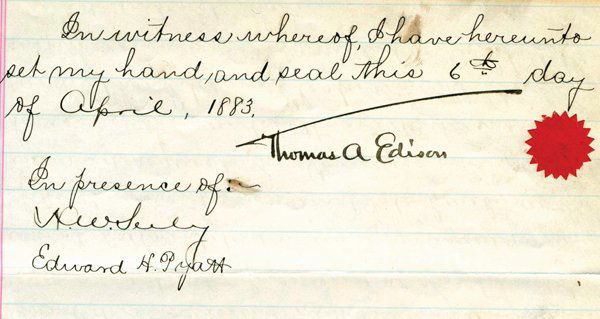 In witness whereof, I have hereunto
set my hand, and seal this 6th day
of April, 1883.
Thomas A Edison
In presence of:
H. W. Seely
Edward H. Pyatt